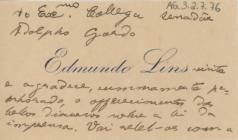 Ao Exmo Collega Senador
AG.3.2.7.76
Adolpho Gordo
Edmundo Lins visita
e agradece, summamente pe-
nhorado, o offerecimento dos
bellos discursos sobre a lei da
imprensa. Vai relel-os com a